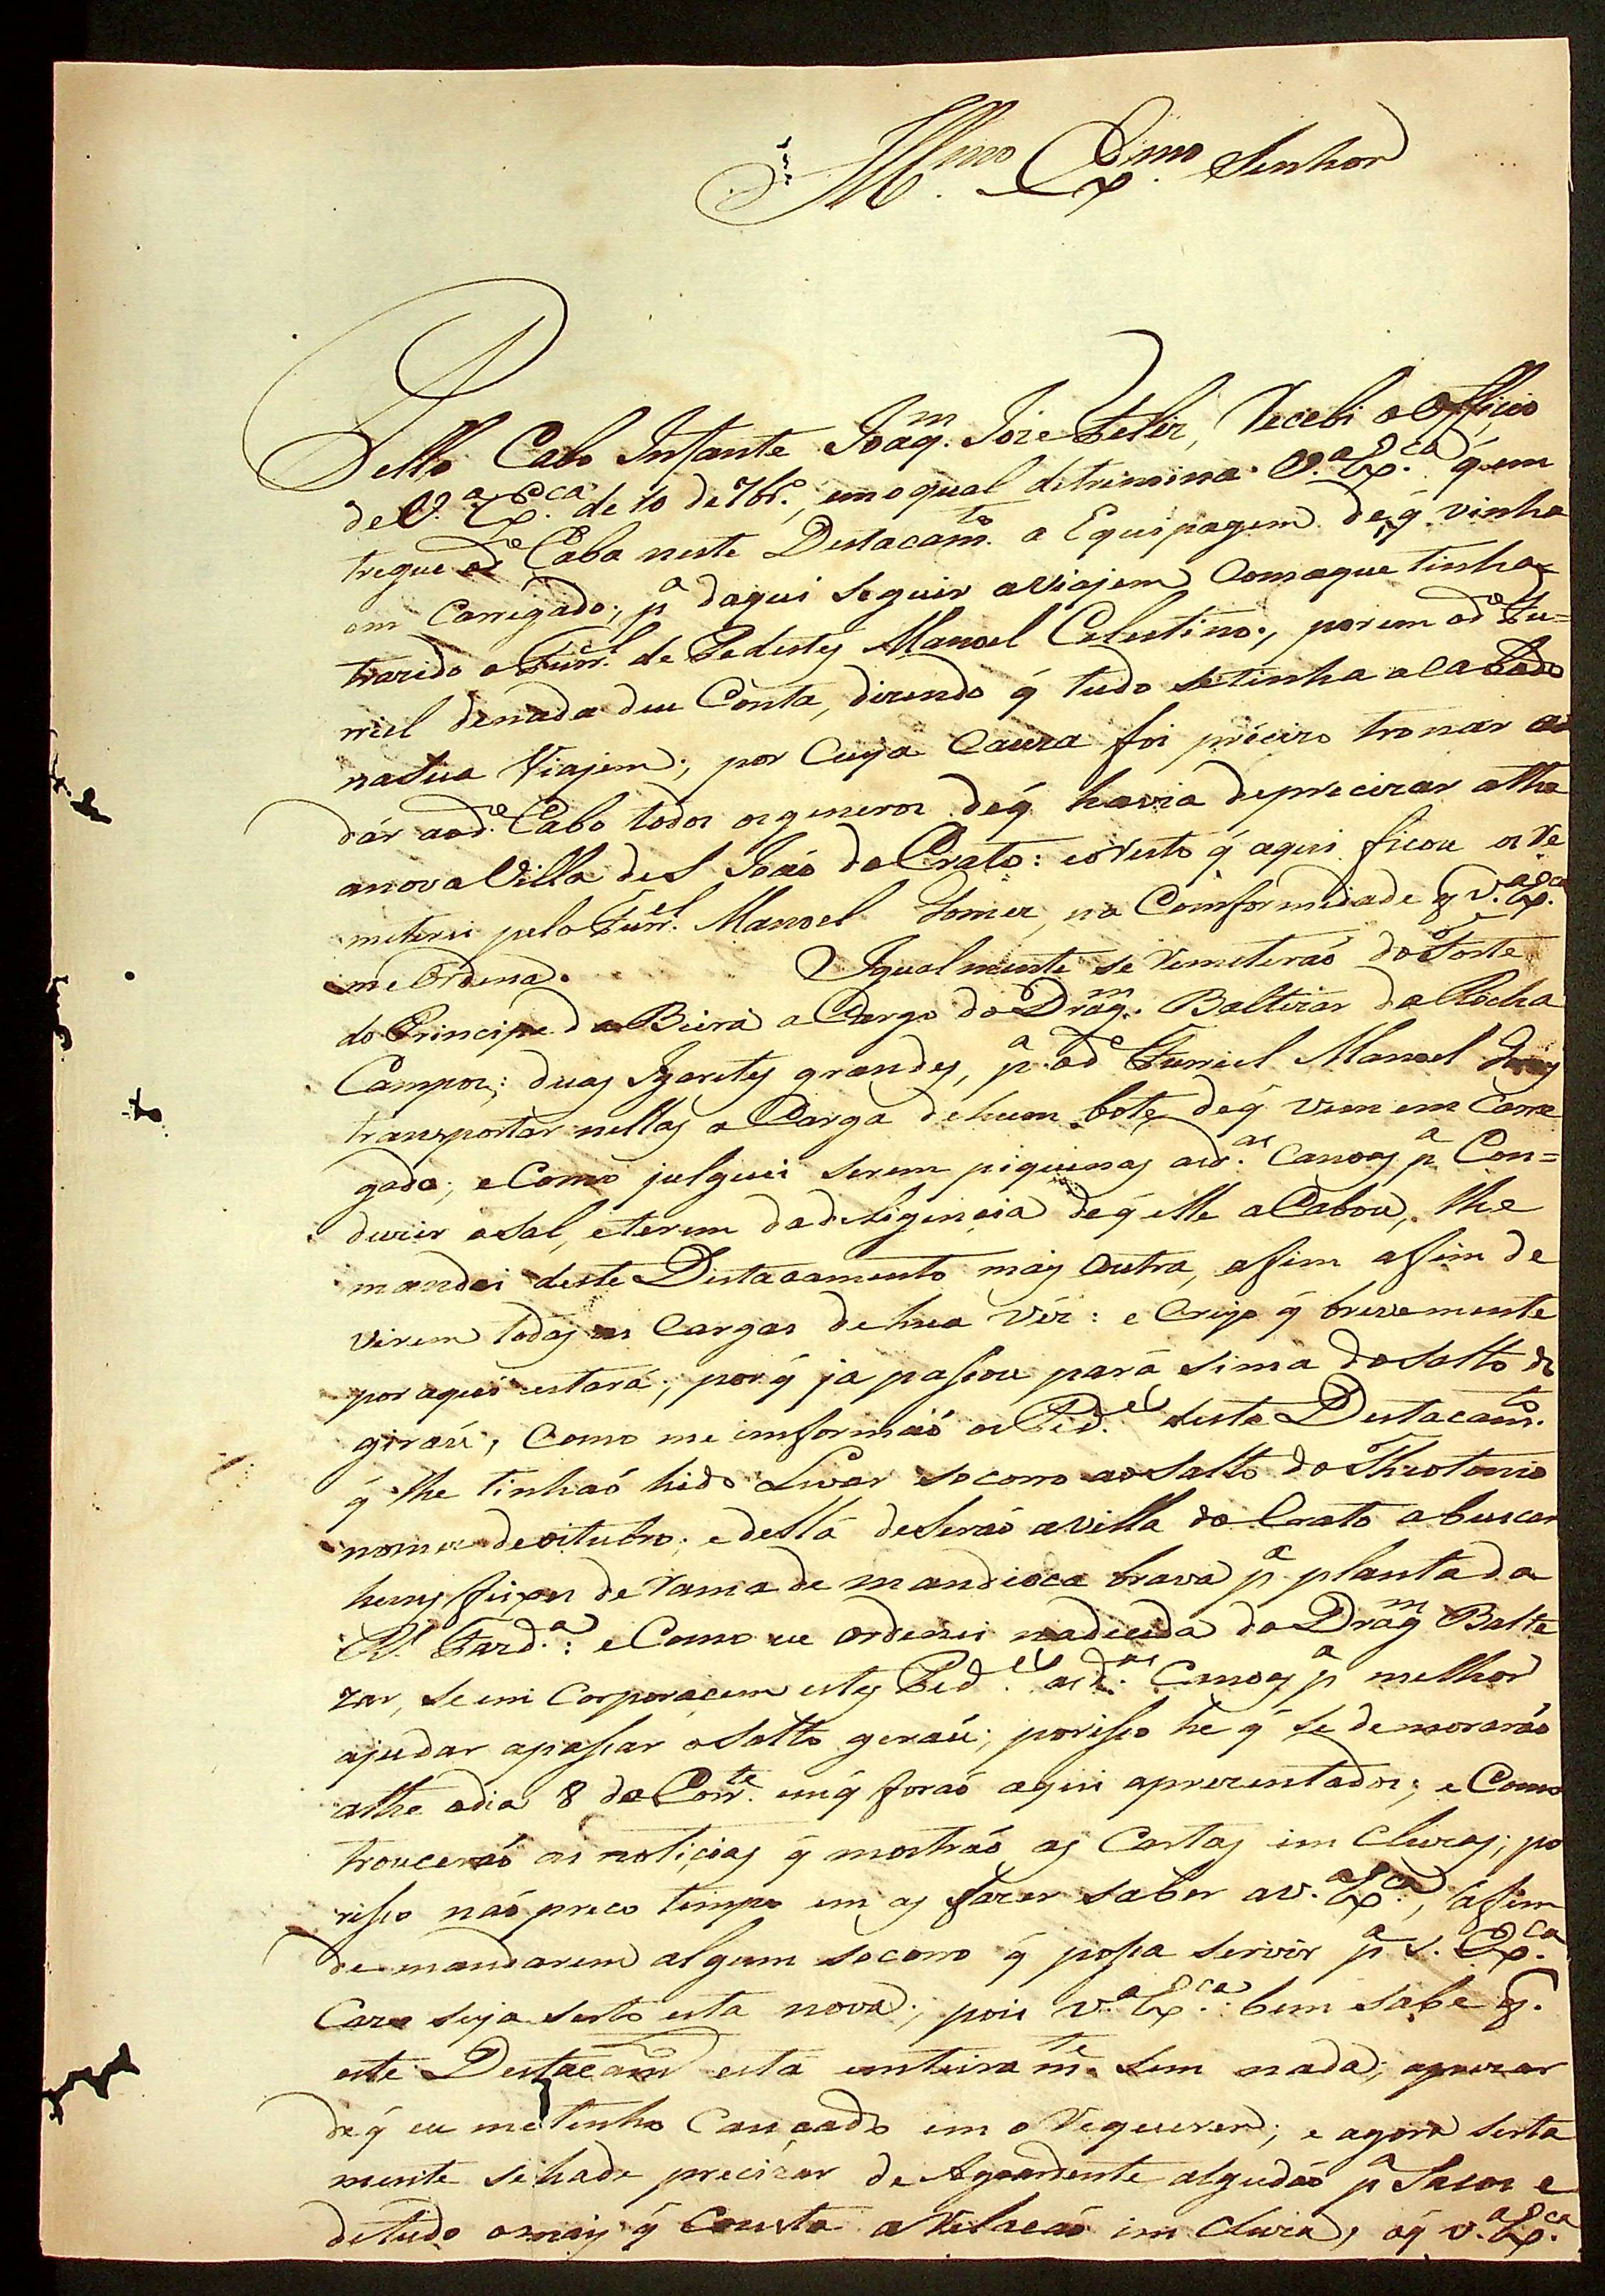 Ill.mo Ex.mo Senhor
Pello Cabo Infante Joaq.m Joze Felix, Recebi o Officio
de V.a Ex.ca de 10 de 7br.o, em o qual detrimina V.a Ex.ca q̃ em
tregue o d.o Cabo neste Destacam.to a Equipagem de q̃ vinha
em Carregado; p.a daqui seguir a viajem Com a que tinha
trazido o Furr.el de Pedestes Manoel Celestino; porem o d.o Fu=
rriel de nada deu Conta, dizendo q̃ tudo se tinha acabado
na sua Viajem; por Cuja Cauza foi precizo tronar a
dár ao d.o Cabo todos os generos de q̃ havia de precizar athe
a nova Villa de S João do Crato: e o resto q̃ aqui ficou o re
meterei pelo Furr.el Manoel Gomez, na Comformidade q̃ V.a Ex.ca
me Ordena. Igualmente se remeterão do Forte
do Principe da Beira a Cargo do Drag.m Baltizar da Rocha
Campos; duas Igarites grandes, p.a o d.o Furriel Manoel
transportar nellas a Carga de hum bote de q̃ vem em Carre
gado; e Como julguei serem piquenas as d.as Canoas p.a Con=
duzir o sal, e terem da deligencia de q̃ elle acabou, lhe
mandei deste Distacamento mais Outra, assim assim de
virem todas as Cargas de hua vêz: e Creyo q̃ brevemente
por aqui estará; por q̃ ja passou pará sima do salto do
giraú, Como me imformão os Ped.es deste Destacam.to
q̃ lhe tinhão hido Levar socorro ao salto do Theotonio
no mez de oitubro; e dessa deserão a villa do Crato a buscar
huns feixes de rama de mandioca brava p.a planta da
R.l Fazd.a: e Como eu ordenei na decida do Drag.m Balte
zar, se em Corporacem estes Ped.es as d.as Canoas p.a melhor
ajudar a passar o salto geraú; por isso he q̃ se demorarão
athe o dia 8 do Corr.te em q̃ forão aqui aprezentados; e Como
troucerão as noticias q̃ mostrão as Cartas im Cluzas; po
risso não preco tempo em as fazer saber a V.a Ex.ca, assim
de mandarem algum socorro q̃ possa servir p.a S. Ex.ca
Cazo seja serto esta nova; pois V.a Ex.ca bem sabe q̃
este Destacam.to esta enteiram.te sem nada; apezar
de q̃ eu me tenho Cançado em o requerer; e agora serta
mente se hade precizar de Agoardente algudão p.a Sacos e
de tudo o mais q̃ Consta a relacaó im Cluza, o q̃ V.a Ex.ca